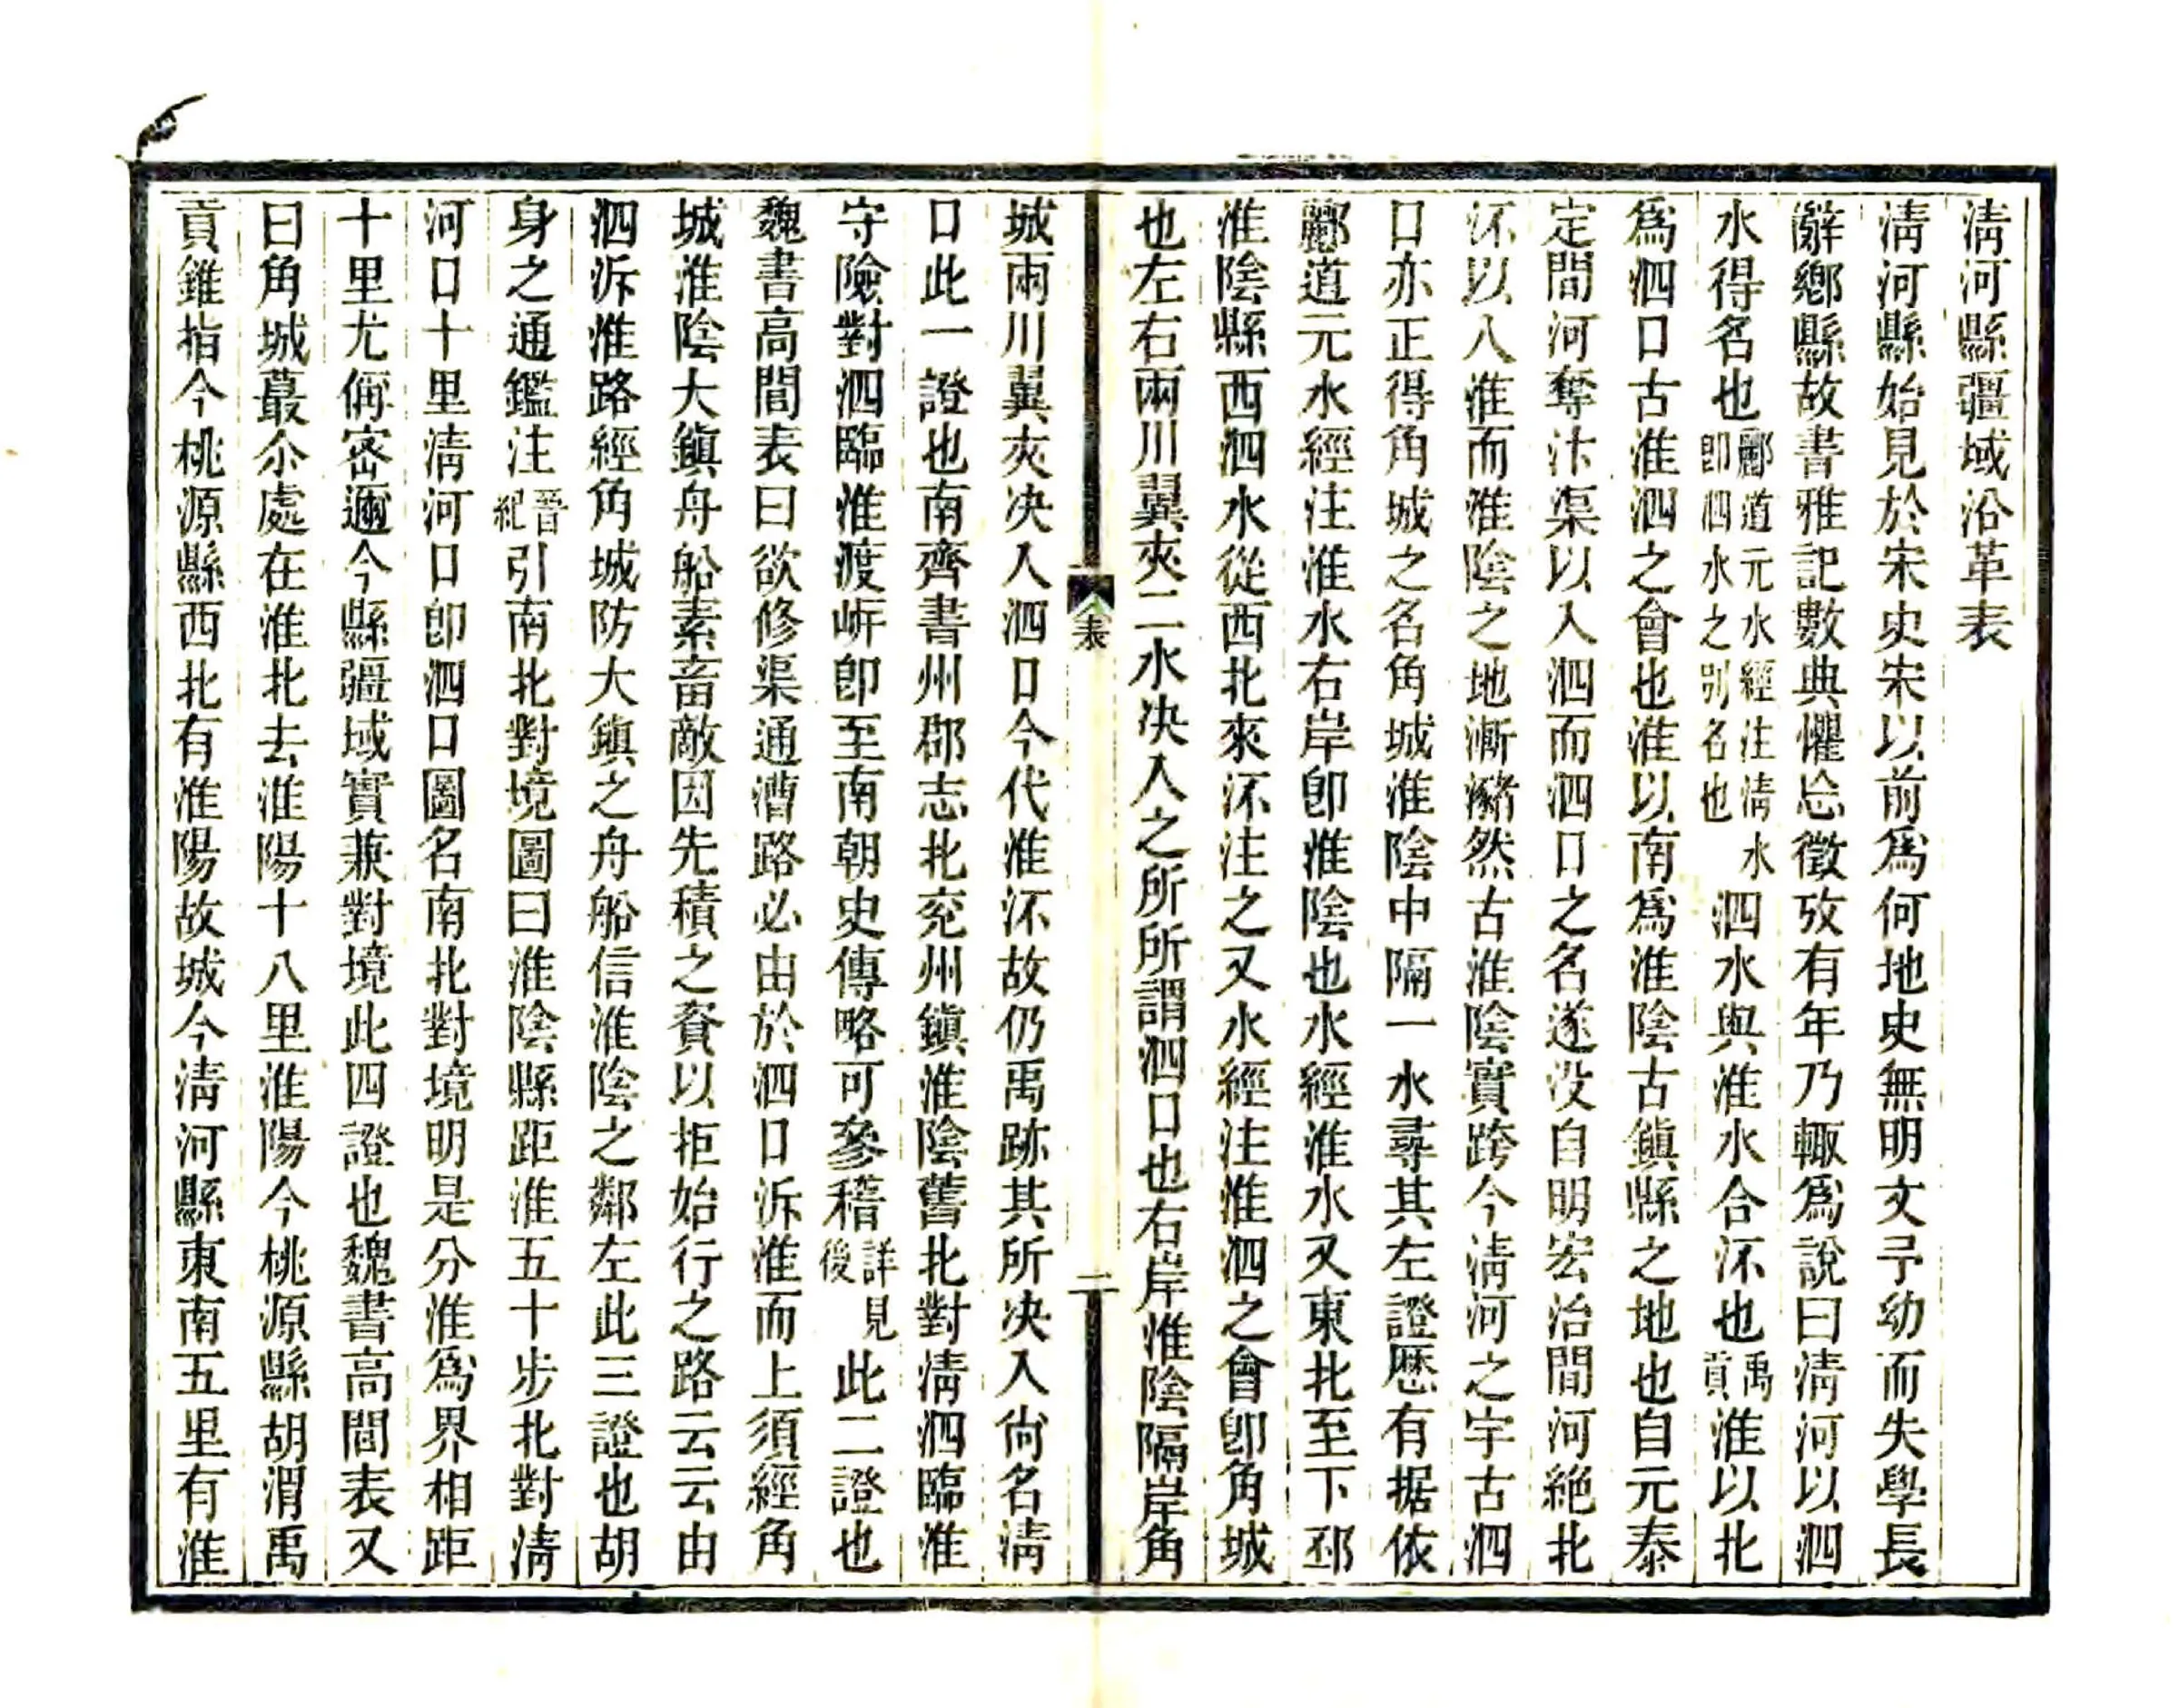 淸河縣疆域沿革表
淸河縣始見於宋史宋以前爲何地史無明文予幼而失學長
辭鄉縣故書雅記數典懼忘徵攷有年乃輙爲說曰淸河以泗
水得名也酈道元水經注淸水卽泗水之別名也泗水與淮水合沠也禹貢淮以北
爲泗口古淮泗之會也淮以南爲淮陰古鎭縣之地也自元泰
定間河奪汴渠以入泗而泗口之名遂没自明宏治間河絶北
沠以入淮而淮陰之地漸瀦然古淮陰實跨今淸河之宇古泗
口亦正得角城之名角城淮陰中隔一水尋其左證歷有据依
酈道元水經注淮水右岸卽淮陰也水經淮水又東北至下邳
淮陰縣西泗水從西北來沠注之又水經注淮泗之會卽角城
也左右兩川翼夾二水决入之所所謂泗口也右岸淮陰隔岸角
表
二
城兩川翼夾决入泗口今代淮沠故仍禹跡其所决入尙名淸
口此一證也南齊書州郡志北兖州鎭淮陰舊北對淸泗臨淮
守險對泗臨淮渡㟁卽至南朝史傳略可參稽詳見後此二證也
魏書高閭表曰欲修渠通漕路必由於泗口泝淮而上須經角
城淮陰大鎭舟船素畜敵因先積之資以拒始行之路云云由
泗泝淮路經角城防大鎭之舟船信淮陰之鄰左此三證也胡
身之通鑑注晉紀引南北對境圖曰淮陰縣距淮五十步北對淸
河口十里淸河口卽泗口圖名南北對境明是分淮爲界相距
十里尤偁密邇今縣疆域實兼對境此四證也魏書高閭表又
曰角城蕞尒處在淮北去淮陽十八里淮陽今桃源縣胡渭禹
貢錐指今桃源縣西北有淮陽故城今淸河縣東南五里有淮